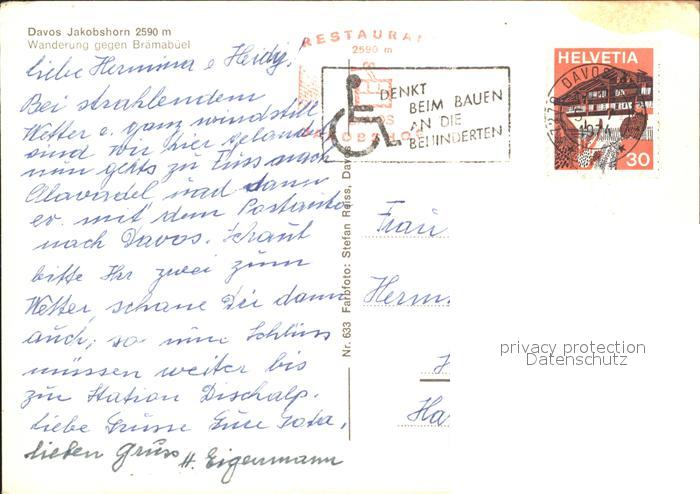 Davos Jakobshorn 2590 m
Wanderung gegen Brämabüel
RESTAURAN
2590 m
liebe Hermina e Heidy!
Bei strahlendem
Wetter e. ganz windstill
sind wir hier gelandet
nun gehts zu Fuss nach
Clavadel und dann
ev. mit dem Postauto
nach Davos. Schaut
bitte Ihr zwei zum
Wetter, schone Die dann
auch; so nun Schluss
müssen weiter bis
zur Station Dischalp.
liebe Grüsse Eure Gota,
lieben Gruss H. Eigenmann
DENKT
BEIM BAUEN
AN DIE
BEHINDERTEN
HELVETIA
30
7270 DAVOS
1974
Nr. 633 Farbfoto: Stefan Reiss, Davos
Frau
Herm
Ha
privacy protection
Datenschutz